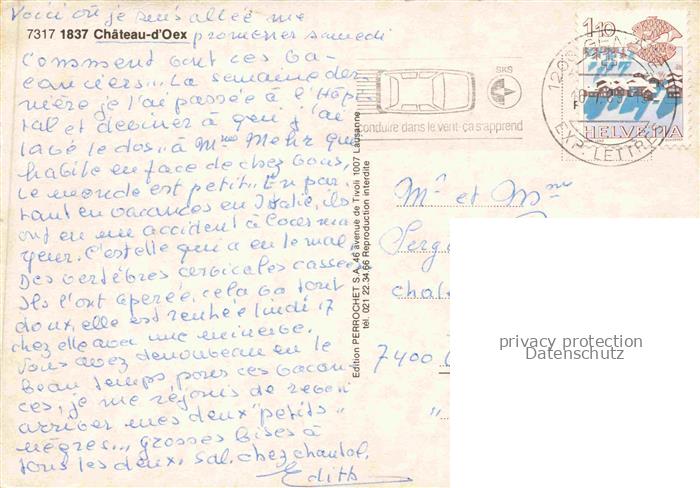 Voici où je suis allée me
promener samedi
7317 1837 Château-d'Oex
Comment vont ces va-
canciers... La semaine der
nière je l'ai passée à l'Hôpi
tal et devinez à qui j'ai
lavé le dos, à Mme Mehr qui
habite en face de chez vous,
le monde est petit. En par
tant en vacances en Italie, ils
ont eu un accident à Locarno
C'est elle qui a eu le mal,
Des vertèbres cervicales cassées
Ils l'ont operée, cela va tout
doux, elle est rentrée lundi 17
chez elle avec une minerve.
Vous avez denouveau eu le
beau temps pour ces vacan
ces, je me réjouis de revoir
arriver mes deux "petits"
nègres... grosses bises à
tous les deux. Sal. chez chantal.
Edith
Edition PERROCHET S.A. 46 avenue de Tivoli 1007 Lausanne
tél. 021 22.34.66 Reproduction interdite
SKS
conduire dans le vent-ça s'apprend
1200
EXP. LETTRE
110
HELVETIA
Mr et Mme
Serge
chale
7400
"
privacy protection
Datenschutz